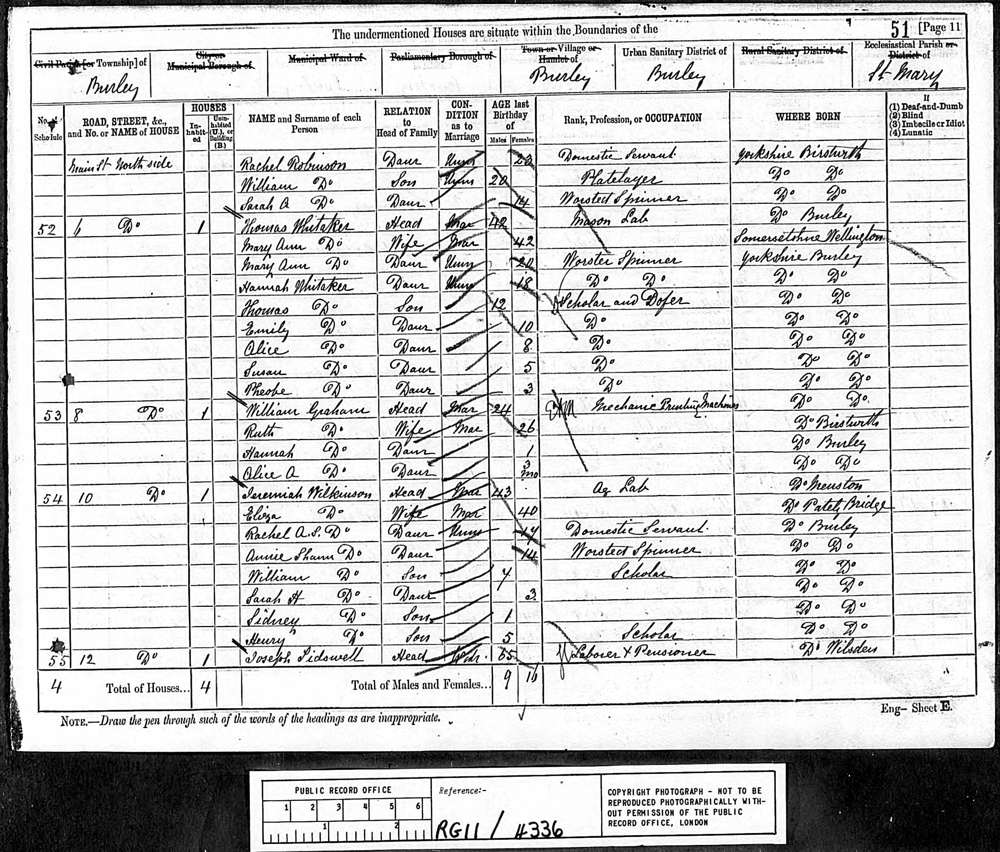 The undermentioned Houses are situate within the Boundaries of the
51 [Page 11
Civil Parish [or Township] of
City or Municipal Borough of
Municipal Ward of
Parliamentary Borough of
Town or Village or Hamlet of
Urban Sanitary District of
Rural Sanitary District of
Ecclesiastical Parish or District of
Burley Burley Burley St Mary
No. of Schedule
ROAD, STREET, &c., and No. or NAME of HOUSE
HOUSES
In-habit-ed
Unin-habited (U.), or Building (B)
NAME and Surname of each Person
RELATION to Head of Family
CON-DITION as to Marriage
AGE last Birthday of
Males Females
Rank, Profession, or OCCUPATION
WHERE BORN
If
(1) Deaf-and-Dumb
(2) Blind
(3) Imbecile or Idiot
(4) Lunatic
Main St North side Rachel Robinson Daur Unm 22 Domestic Servant Yorkshire Birstwith
William Do Son Unm 20 Platelayer Do Do
Sarah A Do Daur 14 Worsted Spinner Do Do
52 6 Do 1 Thomas Whitaker Head Mar 42 Mason Lab Do Burley
Mary Ann Do Wife Mar 42 Somersetshire Wellington
Mary Ann Do Daur Unm 20 Worster Spinner Yorkshire Burley
Hannah Whitaker Daur Unm 18 Do Do Do Do
Thomas Do Son 12 Scholar and Dofer Do Do
Emily Do Daur 10 Do Do Do
Alice Do Daur 8 Do Do Do
Susan Do Daur 5 Do Do Do
Pheobe Do Daur 3 Do Do Do
53 8 Do 1 William Graham Head Mar 24 Mechanic Printing Machines Do Do
Ruth Do Wife Mar 26 Do Birstwith
Hannah Do Daur 1 Do Burley
Alice A Do Daur 3 mo Do Do
54 10 Do 1 Jeremiah Wilkinson Head Mar 43 Ag Lab Do Menston
Eliza Do Wife Mar 40 Do Pately Bridge
Rachel A.S. Do Daur Unm 17 Domestic Servant Do Burley
Annie Shann Do Daur 14 Worsted Spinner Do Do
William Do Son 7 Scholar Do Do
Sarah H Do Daur 3 Do Do
Sidney Do Son 1 Do Do
Henry Do Son 5 Scholar Do Do
55 12 Do 1 Joseph Tidswell Head Widr 65 Laborer & Pensioner Do Wilsden
4 Total of Houses... 4 Total of Males and Females... 9 16
NOTE.—Draw the pen through such of the words of the headings as are inappropriate.
Eng— Sheet E.
PUBLIC RECORD OFFICE
1 2 3 4 5 6
1 2
Reference:-
RG11 / 4336
COPYRIGHT PHOTOGRAPH - NOT TO BE
REPRODUCED PHOTOGRAPHICALLY WITH-
OUT PERMISSION OF THE PUBLIC
RECORD OFFICE, LONDON